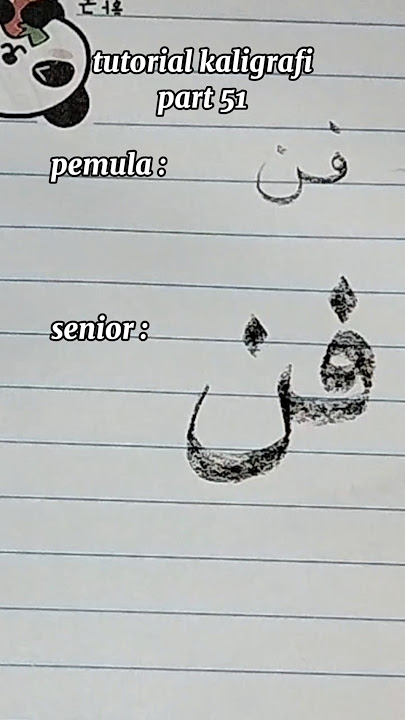 tutorial kaligrafi
part 51
pemula :
فن
senior :
فن